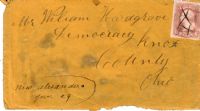 Mr William Hardgrove
Democracy Knox
County
Ohio
New Alexander
Jan 29